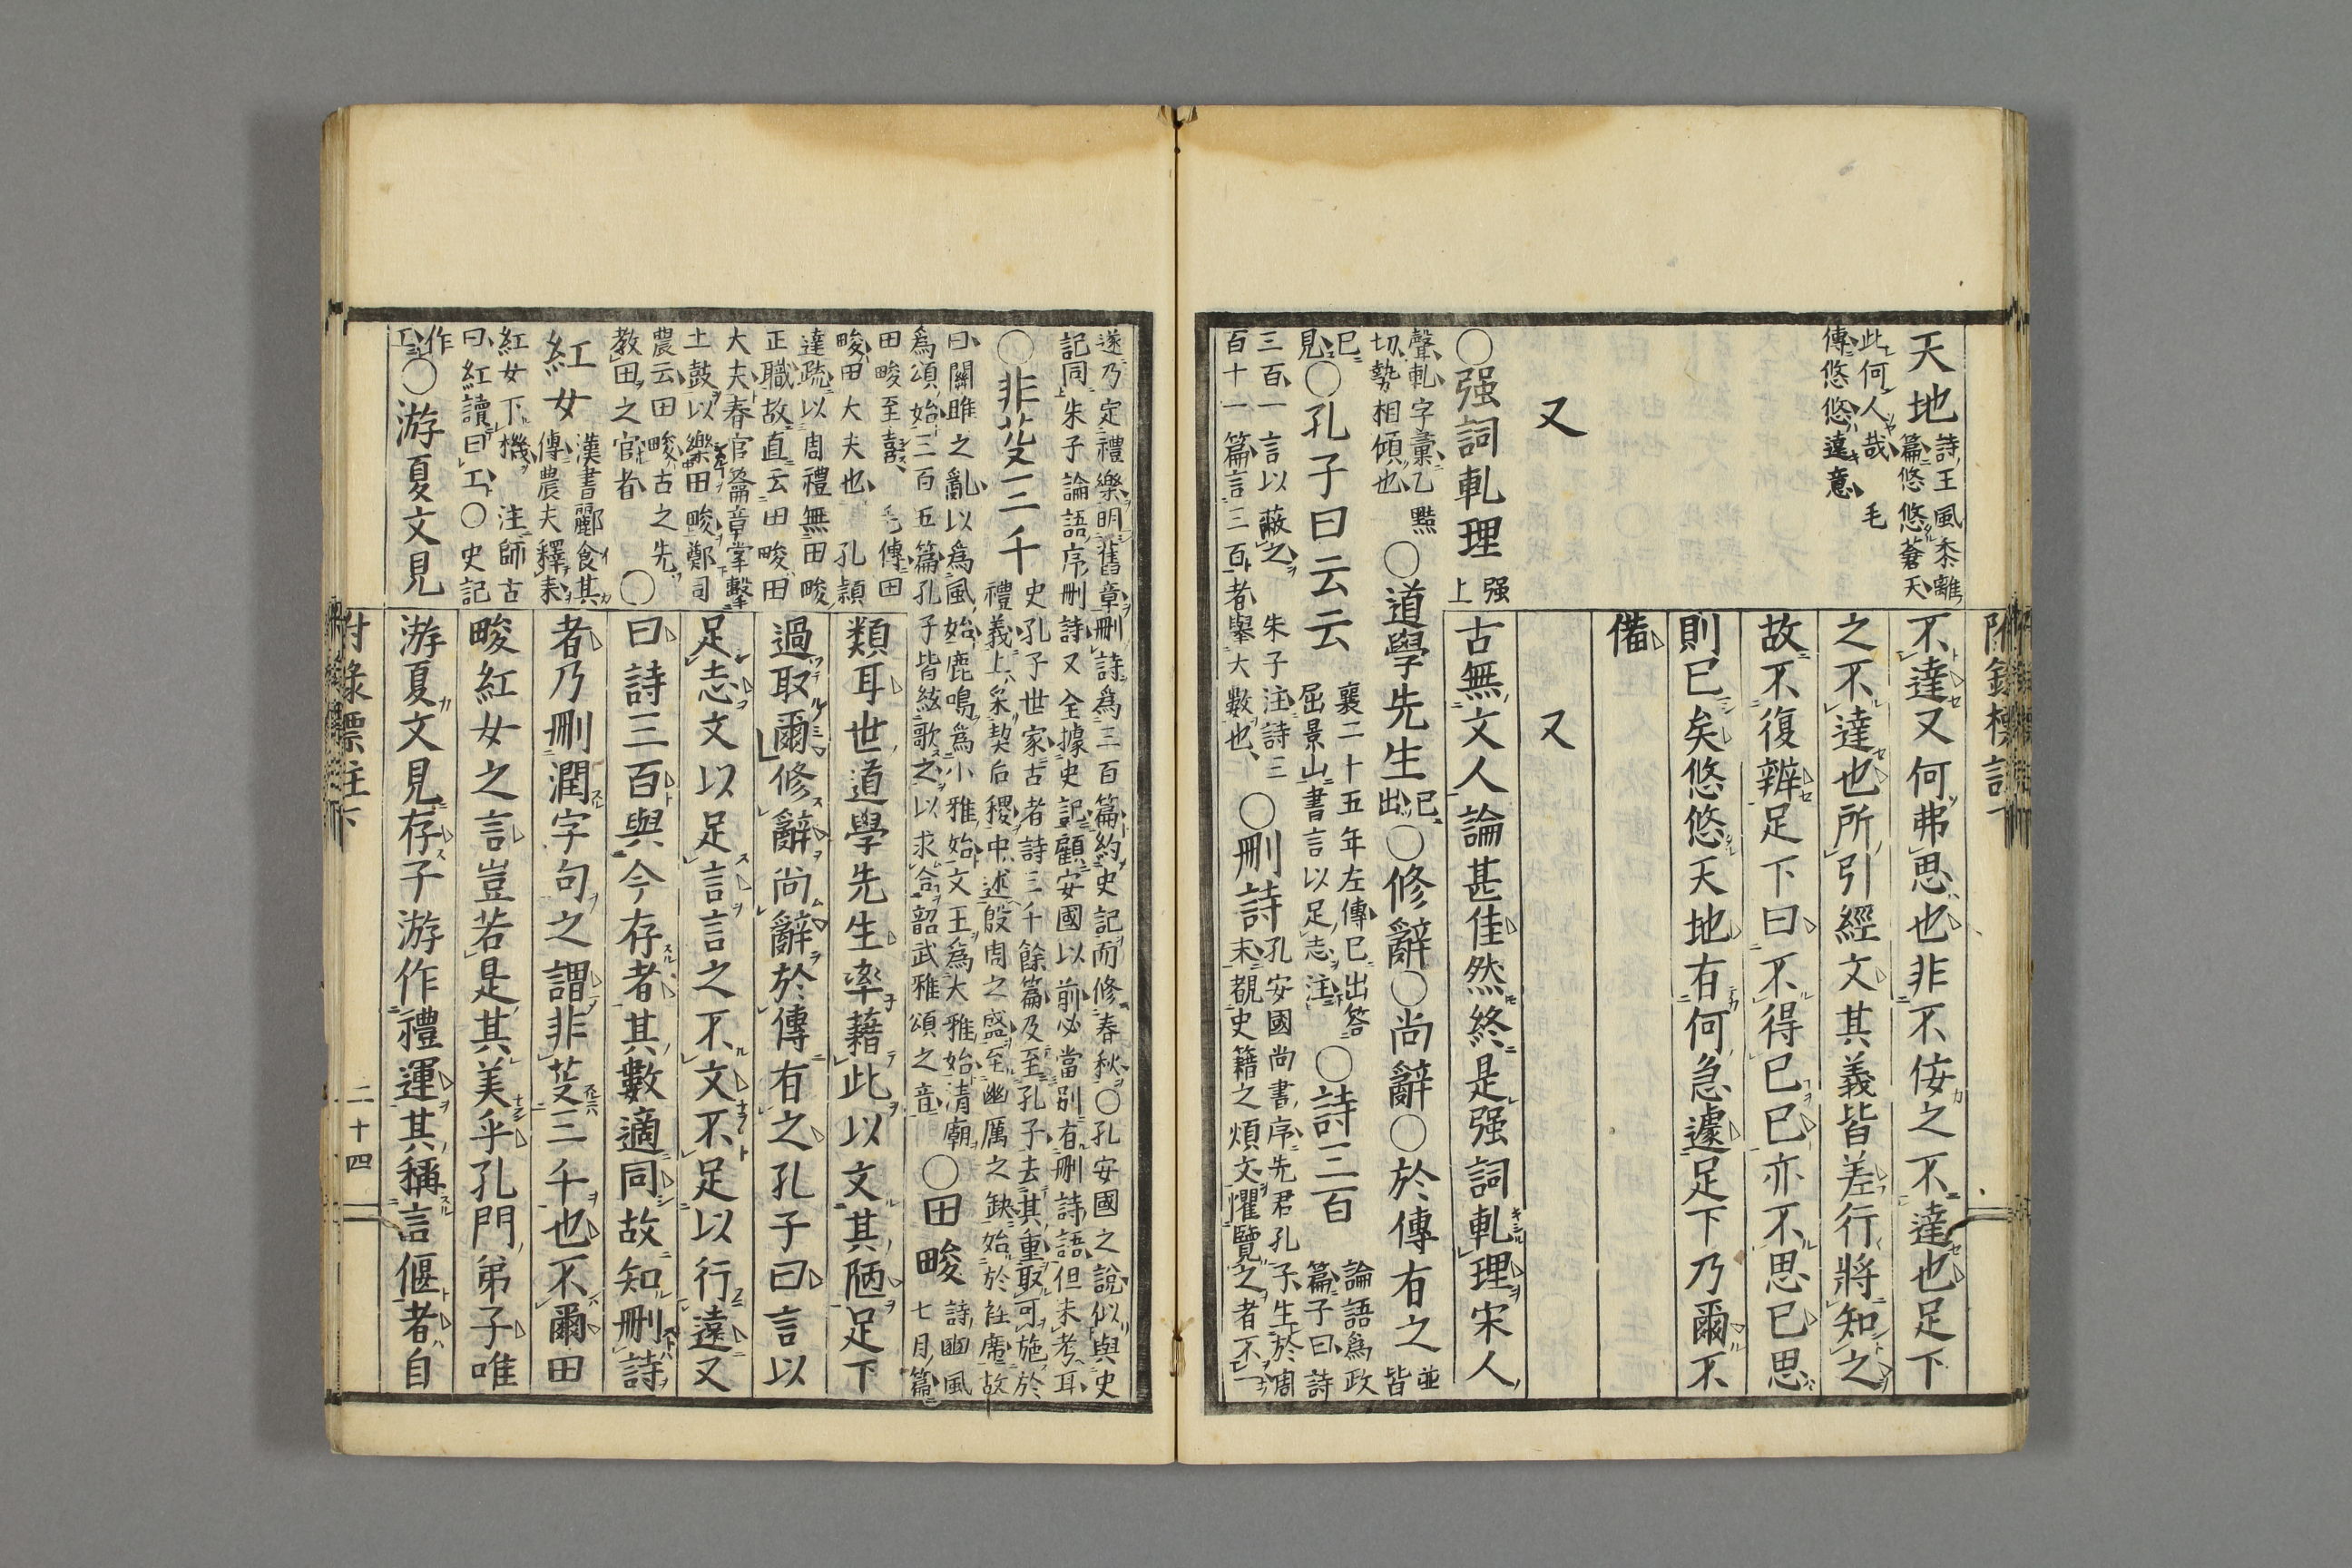 附錄標註下
天地
詩王風黍離
篇悠悠蒼天
此何人哉 毛
傳悠悠遠意
不達又何弗思也非不侫之不達也足下
之不達也所引經文其義皆差行將知之
故不復辨足下曰不得已已亦不思已思
則已矣悠悠天地有何急遽足下乃爾不
備
又
又
○强詞軋理
强
上
聲軋字彙乙黠
切勢相傾也
古無文人論甚佳然終是强詞軋理宋人
○道學先生
已
出
○修辭○尚辭○於傳有之
並
皆
已
見
○孔子曰云云
襄二十五年左傳已出答
屈景山書言以足志注
○詩三百
論語爲政
篇子曰詩
三百一言以蔽之 朱子注詩三
百十一篇言三百者舉大數也
○刪詩
孔安國尚書序先君孔子生於周
末覩史籍之煩文懼覽之者不一
遂乃定禮樂明舊章刪詩爲三百篇約史記而修春秋○孔安國之說似與史
記同朱子論語序刪詩又全據史記顧安國以前必當別有刪詩語但未考耳
○非芟三千
史孔子世家古者詩三千餘篇及至孔子去其重取可施於
禮義上采契后稷中述殷周之盛至幽厲之缺始於衽席故
曰關雎之亂以爲風始鹿鳴爲小雅始文王爲大雅始清廟
爲頌始三百五篇孔子皆絃歌之以求合韶武雅頌之音
○田畯
詩豳風
七月篇
田畯至喜 毛傳田
畯田大夫也 孔穎
達疏以周禮無田畯
正職故直云田畯田
大夫春官籥章掌擊
土鼓以樂田畯鄭司
農云田畯古之先
教田之官者
○紅女
漢書酈食其
傳農夫釋耒
紅女下機 注師古
曰紅讀曰工○史記
作
工
○游夏文見
類耳世道學先生率藉此以文其陋足下
過取爾修辭尚辭於傳有之孔子曰言以
足志文以足言言之不文不足以行遠又
曰詩三百與今存者其數適同故知刪詩
者乃刪潤字句之謂非芟三千也不爾田
畯紅女之言豈若是其美乎孔門弟子唯
游夏文見存子游作禮運其稱言偃者自
附錄標註下
二十四